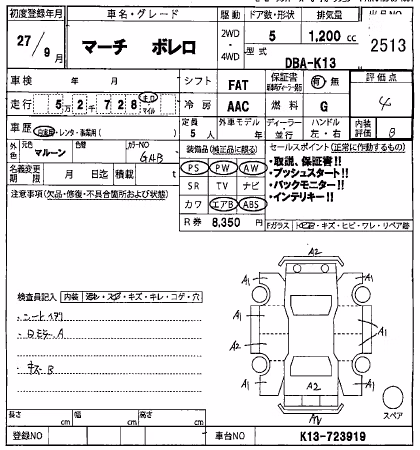 初度登録年月 車名・グレード 駆動 ドア数・形状 排気量
27/9月 マーチ ボレロ 2WD・4WD 5 1,200 cc 2513
型式 DBA-K13
車検 年 月 シフト FAT 保証書 有 無 評価点
走行 5万2千728 キロ マイル 冷房 AAC 燃料 G 4
車歴 自家用・レンタ・事業用( ) 定員 5人 外車モデル 年 ディーラー・並行 ハンドル 左・右 内装評価 B
外色 元色 マルーン 色替 カラーNO GAHB
装備品(純正品に限る)
PS PW AW
SR TV ナビ
カワ エアB ABS
R券 8,350 円
セールスポイント(正常に作動するもの)
・取説、保証書!!
・プッシュスタート!!
・バックモニター!!
・インテリキー!!
名義変更期限 月 日迄 積載 t
注意事項(欠品・修復・不具合箇所および状態)
Fガラス
キズ・ヒビ・ワレ・リペア跡
A2
A1 A1
A1 A1
A2
A1 A1
A2
スペア
検査員記入 内装 ・キズ・キレ・コゲ・穴
キズ B
長さ cm 幅 cm 高さ cm
登録NO 車台NO K13-723919